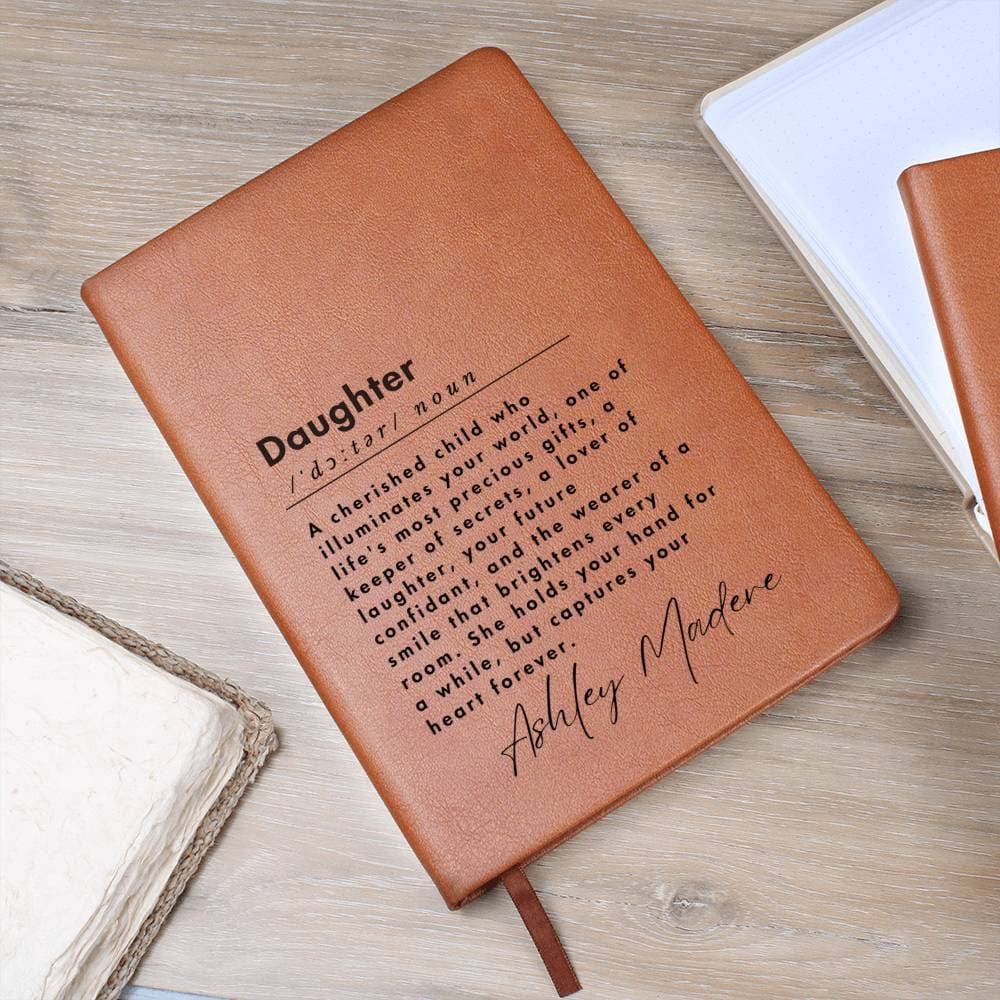 Daughter
/ˈdɔːtər/ noun
A cherished child who
illuminates your world, one of
life's most precious gifts, a
keeper of secrets, a lover of
laughter, your future
confidant, and the wearer of a
smile that brightens every
room. She holds your hand for
a while, but captures your
heart forever.
Ashley Madere